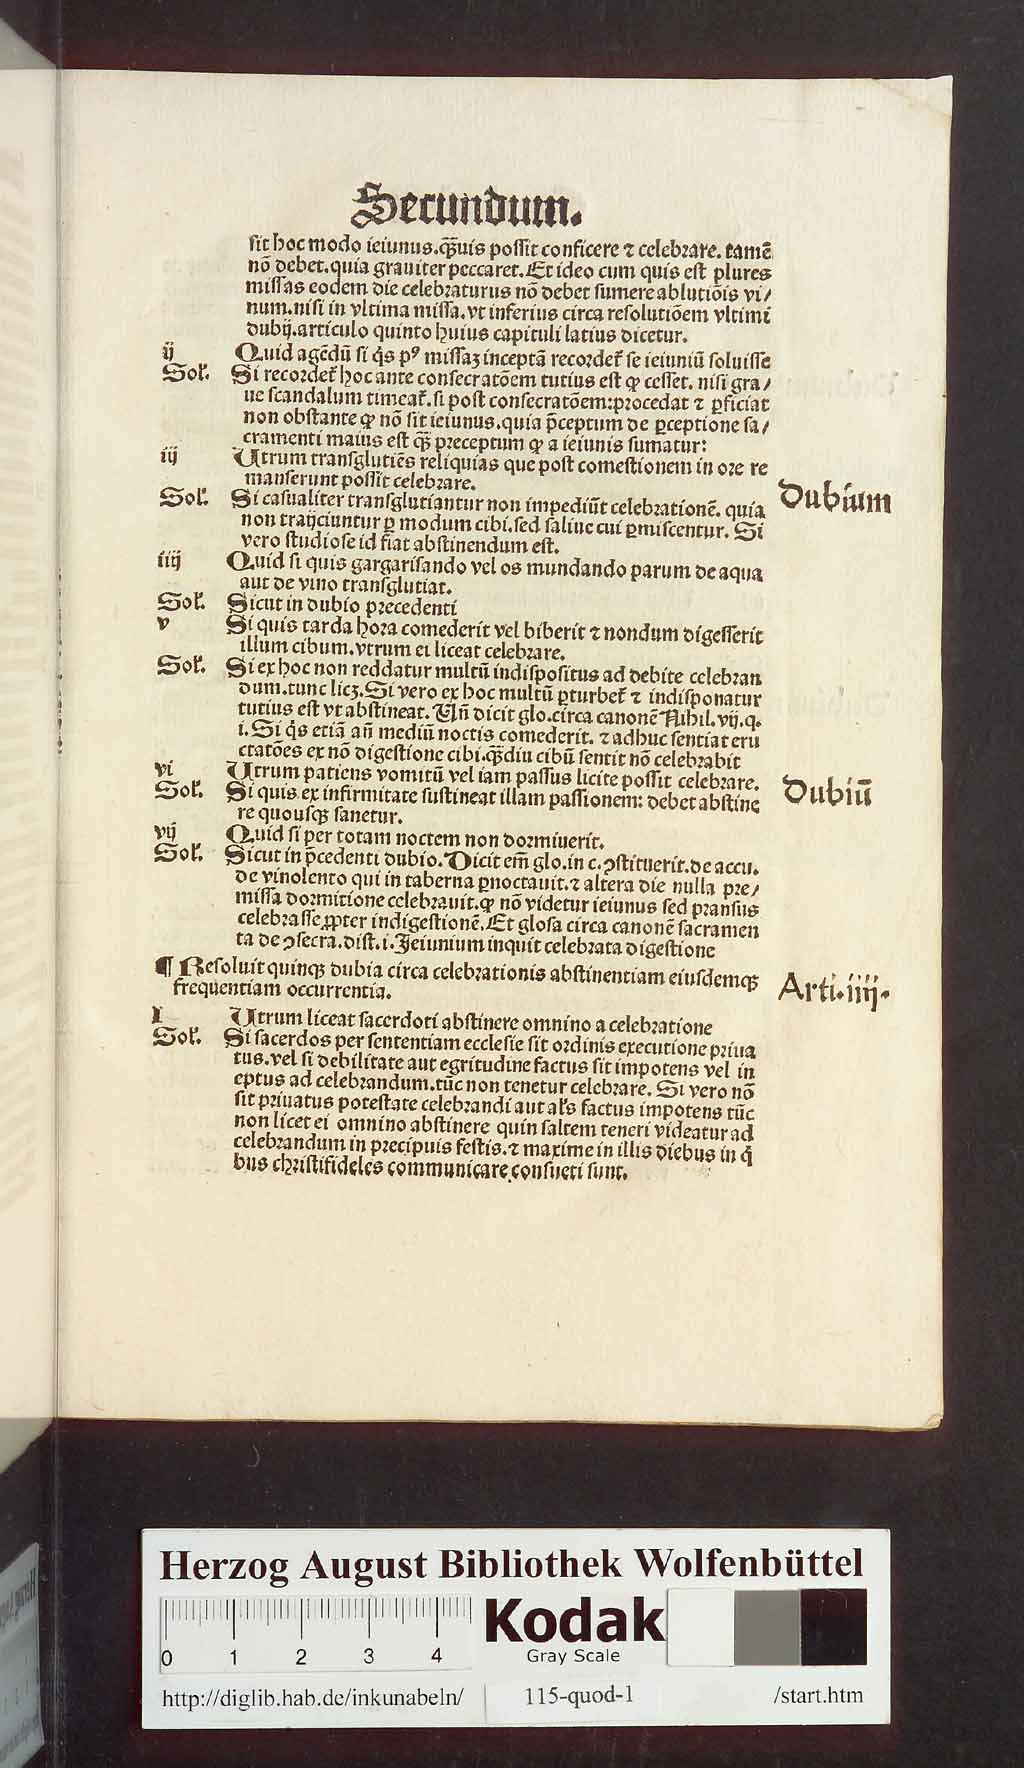 Secundum.
sit hoc modo ieiunus.qȝuis possit conficere ⁊ celebrare. tamē
nō debet.quia grauiter peccaret. Et ideo cum quis est plures
missas eodem die celebraturus nō debet sumere ablutiōis vi/
num.nisi in vltima missa.vt inferius circa resolutiōem vltimi
dubij.articulo quinto huius capituli latius dicetur.
ij Quid agēdū si q̇s pꝰ missaȝ inceptā recordet̄ se ieiuniū soluisse
Sol̄. Si recordet̄ hoc ante consecratōem tutius est ꝙ cesset. nisi gra/
ue scandalum timeat̄. si post consecratōem:procedat ⁊ ꝑficiat
non obstante ꝙ nō sit ieiunus.quia p̄ceptum de ꝑceptione sa/
cramenti maius est qȝ preceptum ꝙ a ieiunis sumatur:
iij Utrum transglutiēs reliquias que post comestionem in ore re
manserunt possit celebrare.
Dubium
Sol̄. Si casualiter transglutiantur non impediūt celebrationē. quia
non traijciuntur ꝑ modum cibi.sed saliue cui ꝑmiscentur. Si
vero studiose id fiat abstinendum est.
iiij Quid si quis gargarisando vel os mundando parum de aqua
aut de vino transglutiat.
Sol̄. Sicut in dubio precedenti
v Si quis tarda hora comederit vel biberit ⁊ nondum digesserit
illum cibum.vtrum ei liceat celebrare.
Sol̄. Si ex hoc non reddatur multū indispositus ad debite celebran
dum.tunc licȝ. Si vero ex hoc multū ꝑturbet̄ ⁊ indisponatur
tutius est vt abstineat. Uñ dicit glo.circa canonē Nihil.vij.q.
i. Si q̇s etiā añ mediū noctis comederit. ⁊ adhuc sentiat eru
ctatōes ex nō digestione cibi.qȝdiu cibū sentit nō celebrabit
vi Utrum patiens vomitū vel iam passus licite possit celebrare.
Dubiū
Sol̄. Si quis ex infirmitate sustineat illam passionem: debet abstine
re quousqȝ sanetur.
vij Quid si per totam noctem non dormiuerit.
Sol̄. Sicut in p̄cedenti dubio. Dicit em̄ glo.in c.ꝯstituerit.de accu.
de vinolento qui in taberna ꝑnoctauit.⁊ altera die nulla pre/
missa dormitione celebrauit.ꝙ nō videtur ieiunus sed pransus
celebrasse ꝓpter indigestionē. Et glosa circa canonē sacramen
ta de ꝯsecra.dist.i. Ieiunium inquit celebrata digestione
¶ Resoluit quinqȝ dubia circa celebrationis abstinentiam eiusdemqȝ
frequentiam occurrentia.
Arti.iiij.
I Utrum liceat sacerdoti abstinere omnino a celebratione
Sol̄. Si sacerdos per sententiam ecclesie sit ordinis executione priua
tus.vel si debilitate aut egritudine factus sit impotens vel in
eptus ad celebrandum.tūc non tenetur celebrare. Si vero nō
sit priuatus potestate celebrandi aut al̄s factus impotens tūc
non licet ei omnino abstinere quin saltem teneri videatur ad
celebrandum in precipuis festis.⁊ maxime in illis diebus in q̇
bus christifideles communicare consueti sunt.
Herzog August Bibliothek Wolfenbüttel
0 1 2 3 4
Kodak
Gray Scale
http://diglib.hab.de/inkunabeln/ 115-quod-1 /start.htm